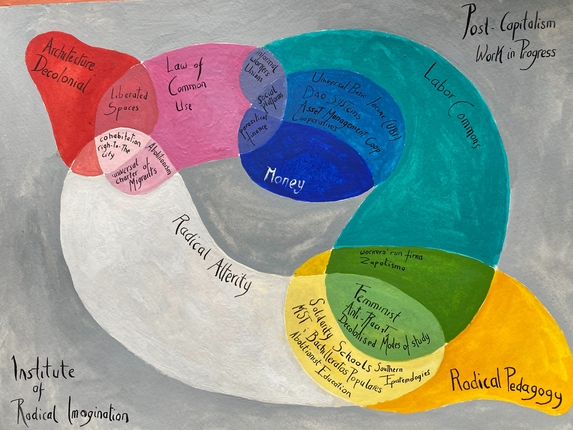 Post-Capitalism
Work in Progress
Architecture
Decolonial
Liberated
Spaces
Law of
Common
Use
Informal
Workers
Unions
Social
Finance
Universal Basic Income (UBI)
Dao Systems
Asset Management Coop
Cooperatives
Labor Commons
cohabitation
right-to-the
city
Abolitionism
universal
charter of
Migrants
Money
Radical Alterity
workers' run firms
Zapatismo
Femminist
Anti-Racist
Decolonised Modes of study
Solidarity Schools
MST & Bachilleratos Populares
Abolitionist Education
Southern
Epistemologies
Radical Pedagogy
Institute
of
Radical Imagination